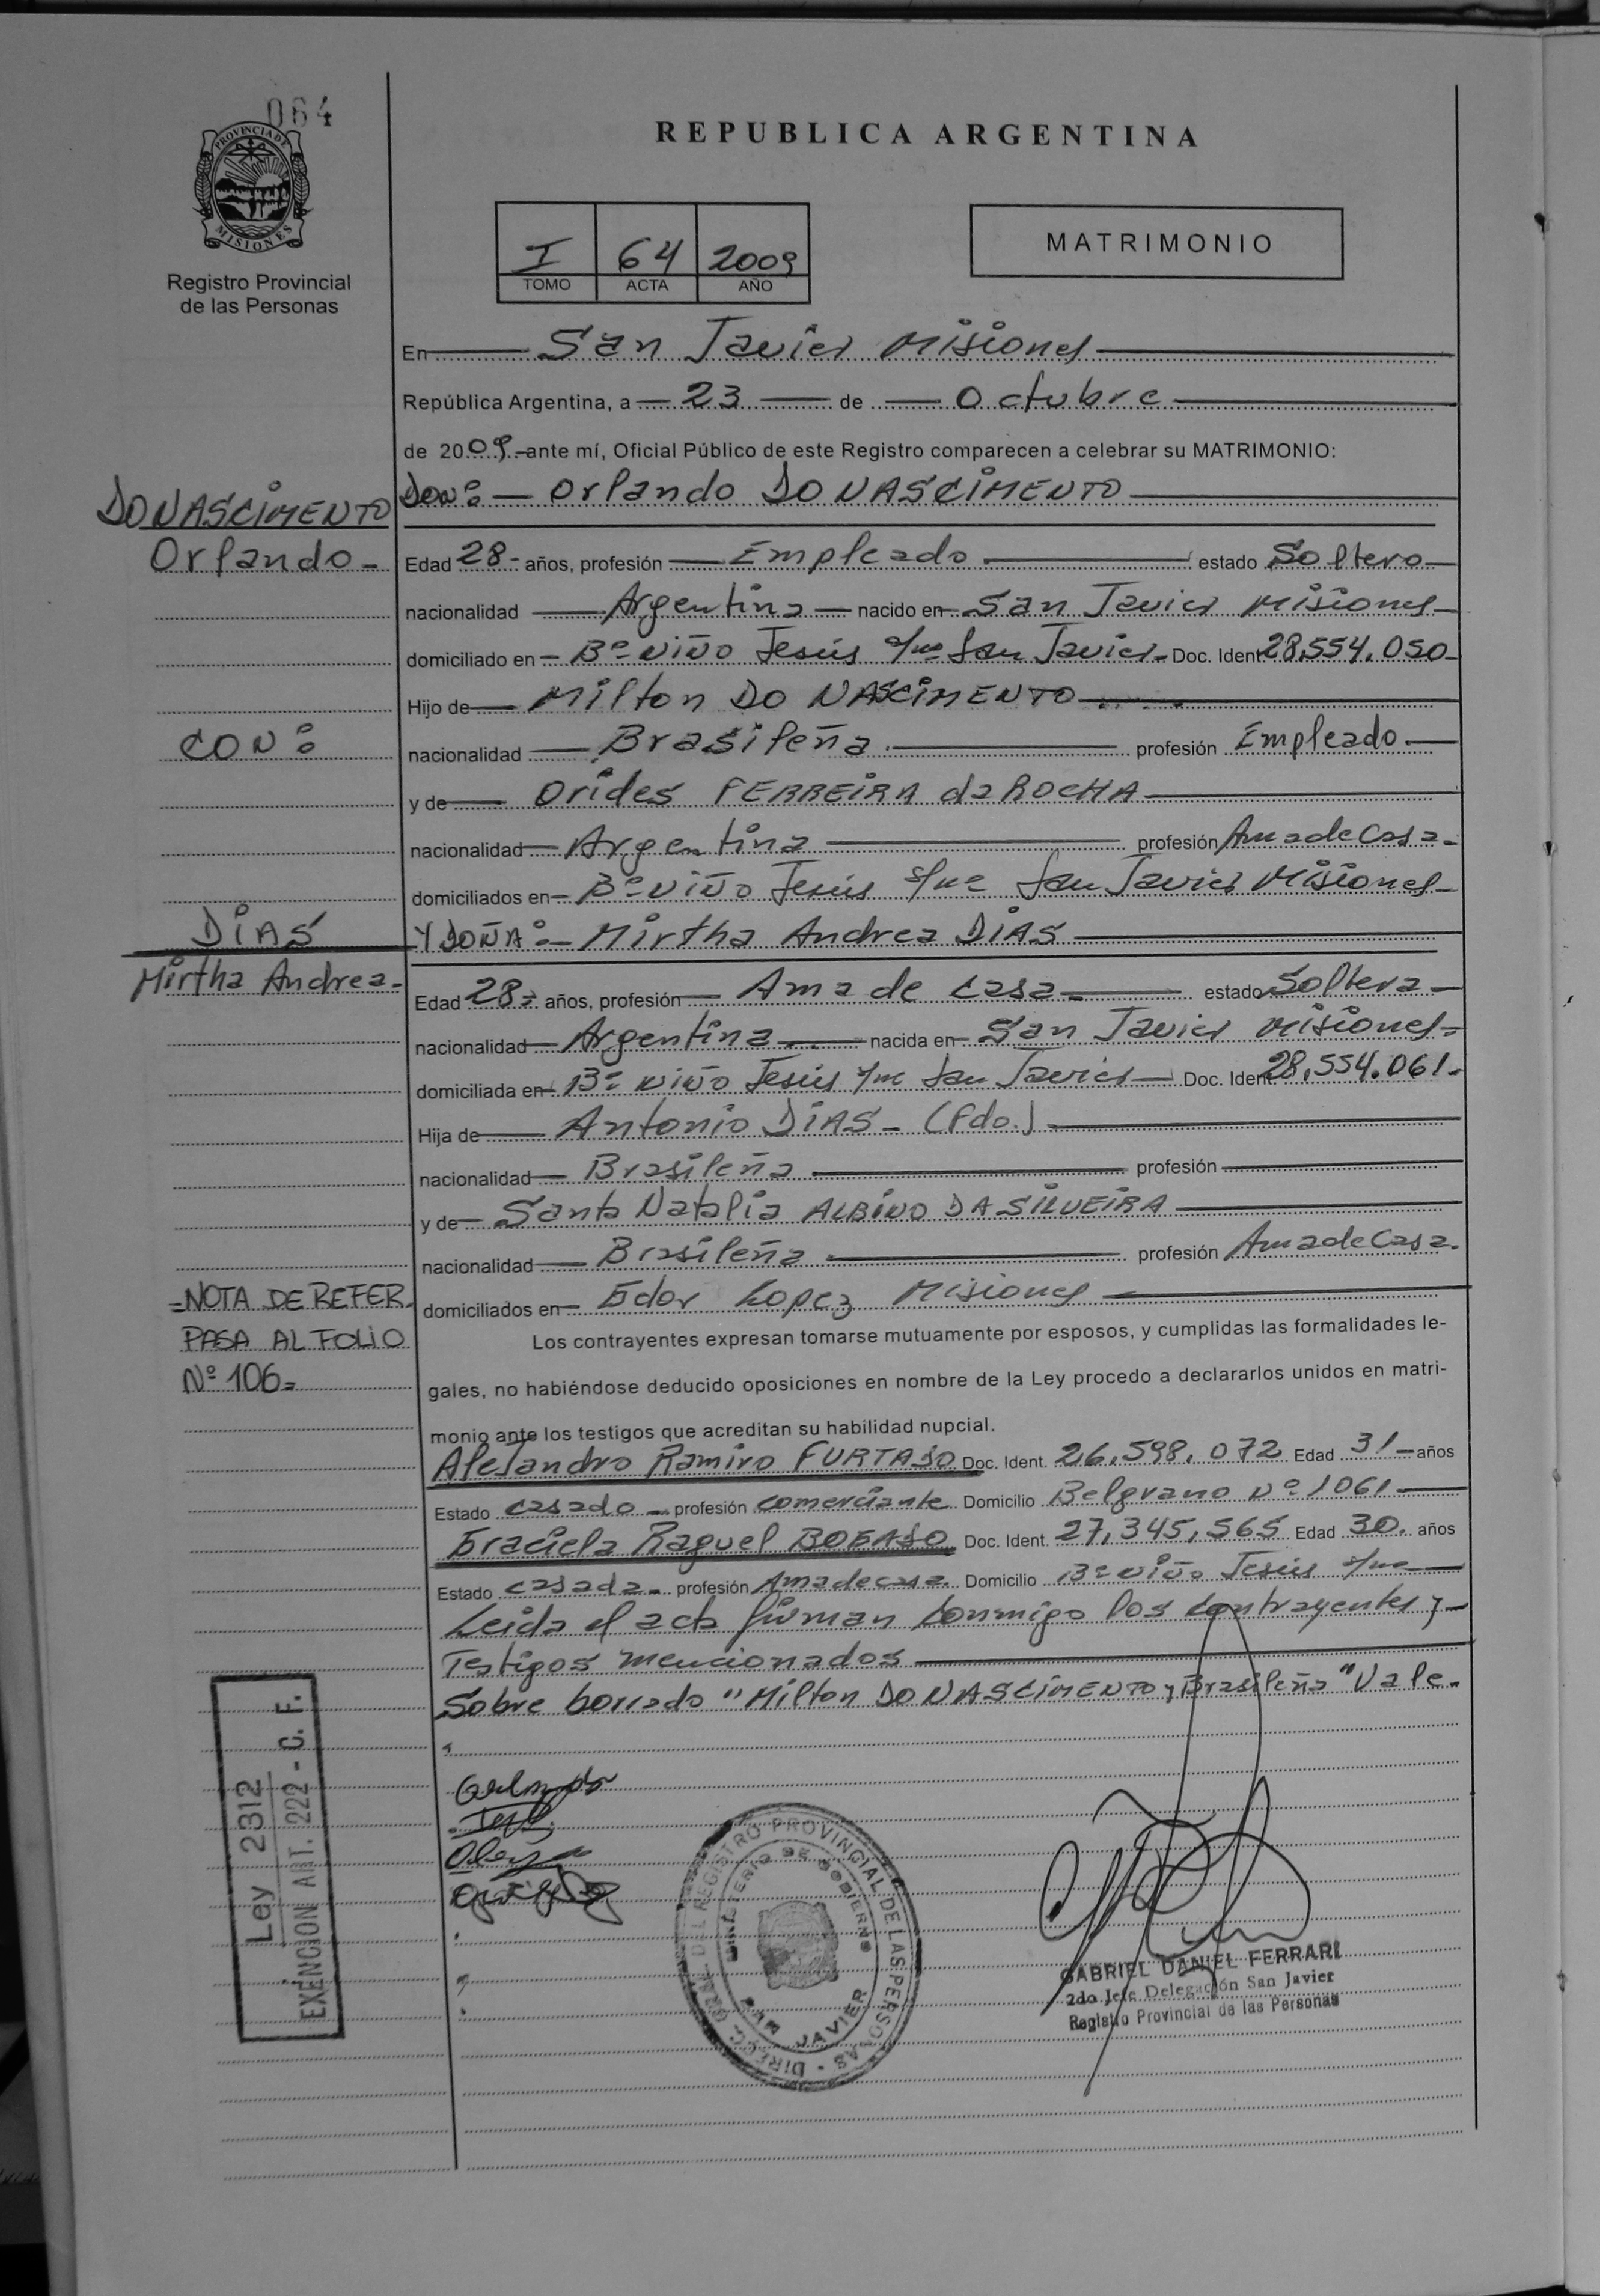 064
PROVINCIA DE
MISIONES
Registro Provincial
de las Personas
REPUBLICA ARGENTINA
I 64 2009
TOMO ACTA AÑO
MATRIMONIO
En San Javier Misiones
República Argentina, a 23 de Octubre
de 2009 ante mí, Oficial Público de este Registro comparecen a celebrar su MATRIMONIO:
DO NASCIMENTO
Orlando
Don: Orlando DO NASCIMENTO
Edad 28 años, profesión Empleado estado Soltero
nacionalidad Argentina nacido en San Javier Misiones
domiciliado en Bº Niño Jesús s/nº San Javier Doc. Ident 28.554.050
Hijo de Milton DO NASCIMENTO
CON:
nacionalidad Brasileña profesión Empleado
y de Orides FERREIRA da ROCHA
nacionalidad Argentina profesión Ama de Casa
domiciliados en Bº Niño Jesús s/nº San Javier Misiones
DIAS
Mirtha Andrea
Y DOÑA: Mirtha Andrea DIAS
Edad 28 años, profesión Ama de casa estado Soltera
nacionalidad Argentina nacida en San Javier Misiones
domiciliada en Bº Niño Jesús s/nº San Javier Doc. Ident 28.554.061
Hija de Antonio DIAS (Fdo.)
nacionalidad Brasileña profesión
y de Santa Natalia ALBINO DA SILVEIRA
nacionalidad Brasileña profesión Ama de Casa
domiciliados en Edor Lopez Misiones
=NOTA DE REFER.
PASA AL FOLIO
Nº 106=
Los contrayentes expresan tomarse mutuamente por esposos, y cumplidas las formalidades le-
gales, no habiéndose deducido oposiciones en nombre de la Ley procedo a declararlos unidos en matri-
monio ante los testigos que acreditan su habilidad nupcial.
Alejandro Ramiro FURTADO Doc. Ident. 26.598.072 Edad 31 años
Estado casado profesión comerciante Domicilio Belgrano Nº 1061
Graciela Raquel Doc. Ident. 27,345,565 Edad 30 años
Estado casada profesión Ama de casa Domicilio Bº Niño Jesús s/nº
Leida el acta firman conmigo los contrayentes y
Testigos mencionados
Sobre borrado "Milton DO NASCIMENTO y Brasileña" Vale.
Ley 2312
EXENCION ART. 222 - C. F.
DIREC. GRAL. DEL REGISTRO PROVINCIAL DE LAS PERSONAS
MINISTERIO DE GOBIERNO
SAN JAVIER
GABRIEL DANIEL FERRARI
2do Jefe Delegación San Javier
Registro Provincial de las Personas